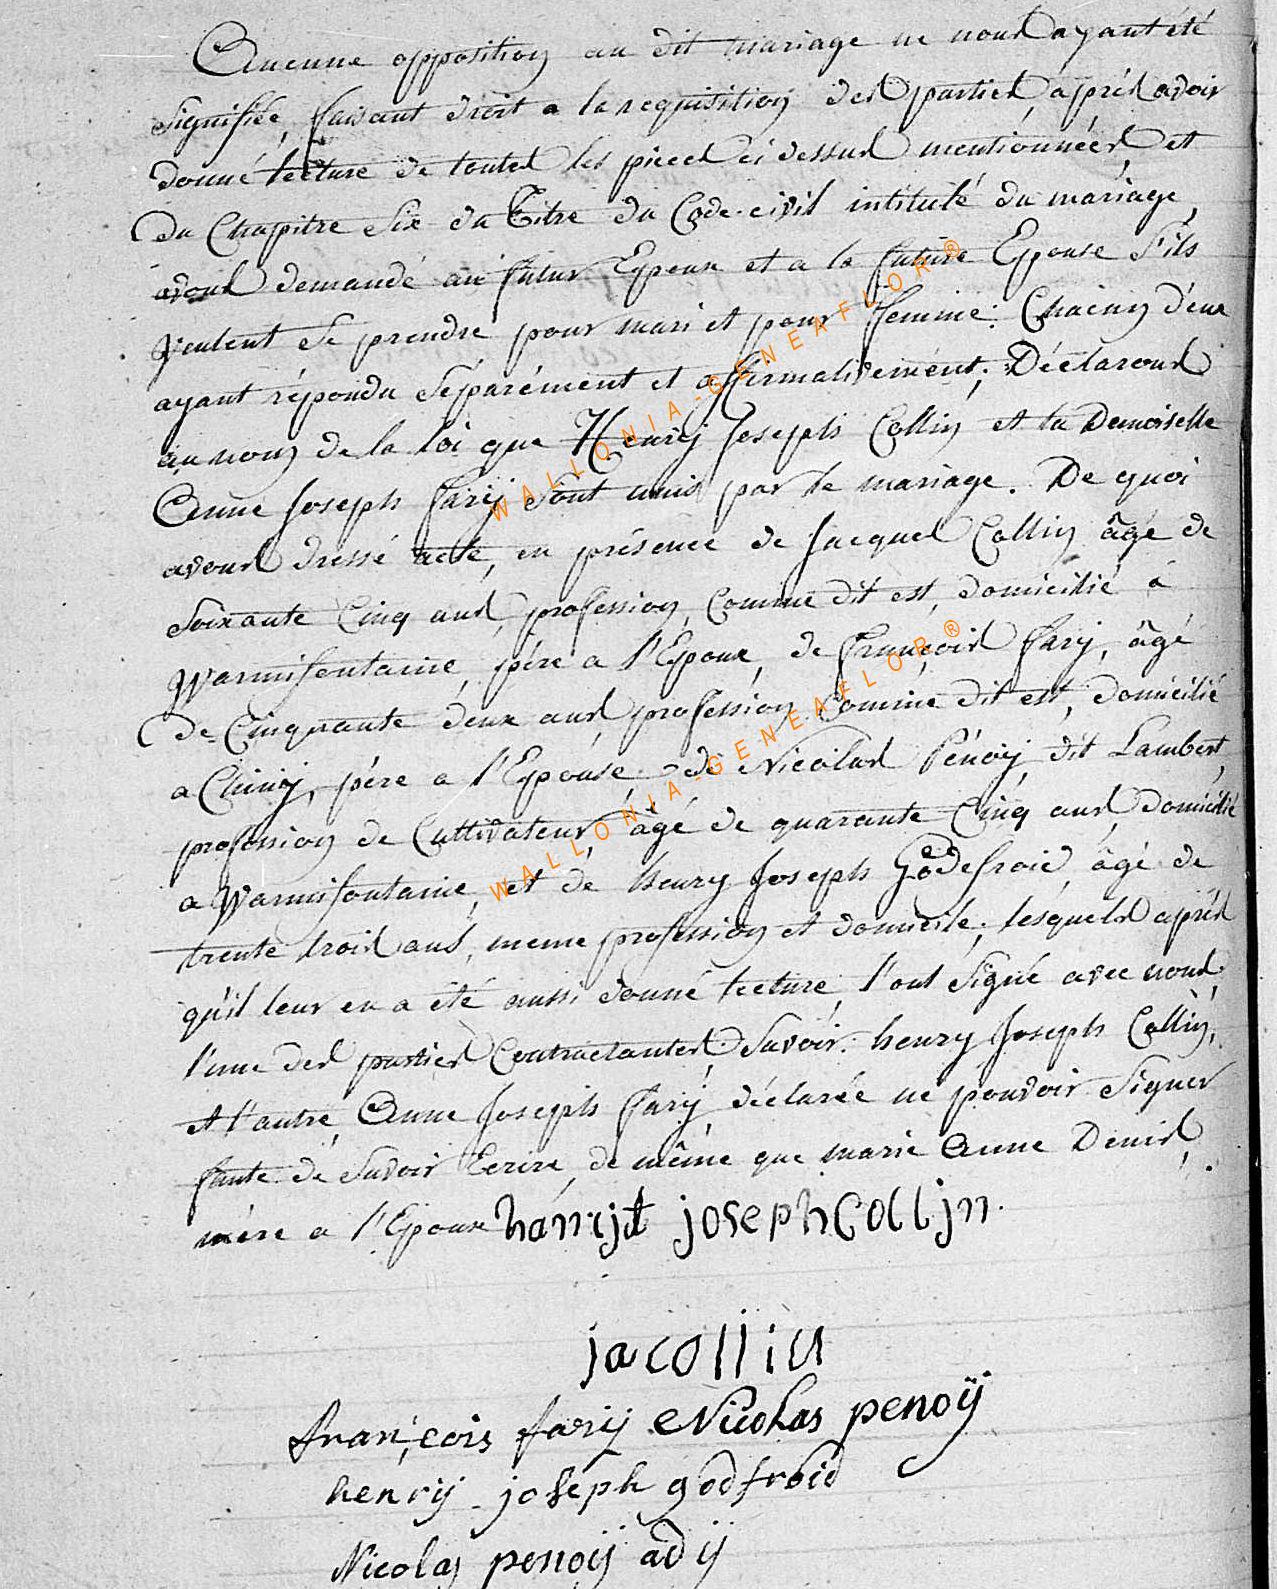 Aucunne opposition au dit mariage ne nous ayant été
signifiée, faisant droit a la requisition des parties, après avoir
donné lecture de toutes les pieces ci dessus mentionnées et
du Chapitre Six du Titre du Code-civil intitulé du mariage,
avons demandé au futur Epoux et a la future Epouse s'ils
veulent se prendre pour mari et pour femme: Chacun d'eux
ayant répondu séparément et affirmativement; Déclarons
au nom de la loi que Henrij Joseph Collin et la Demoiselle
Anne Joseph farij sont unis par le mariage. De quoi
avons dressé acte, en présence de Jacques Collin âgé de
soixante Cinq ans, profession, Comme dit est, domicilié à
Warmifontaine, père a l'Epoux, de françois farij, âgé
de Cinquante deux ans, profession Comme dit est, domicilié
a Chinij, père a l'Epouse; de Nicolas Pénoij dit Lambert,
profession de Cultivateur, âgé de quarante Cinq ans, domicilié
a Warmifontaine, et de henry Joseph Godefroid, âgé de
trente trois ans, meme profession et domicile; lesquels après
qu'il leur en a été aussi donné lecture, l'ont signé avec nous,
l'une des parties Contractantes, Savoir: henry Joseph Collin,
et l'autre, Anne Joseph farij, déclarée ne pouvoir signer
faute de savoir Ecrire, de même que marie Anne Denis,
mère a l'Epoux hanrijt joseph Collijn.
jacollin
françois farij Nicolas penoij
henrij joseph godfroid
Nicolas penoij adij
WALLONIA-GENEAFLOR®
WALLONIA-GENEAFLOR®